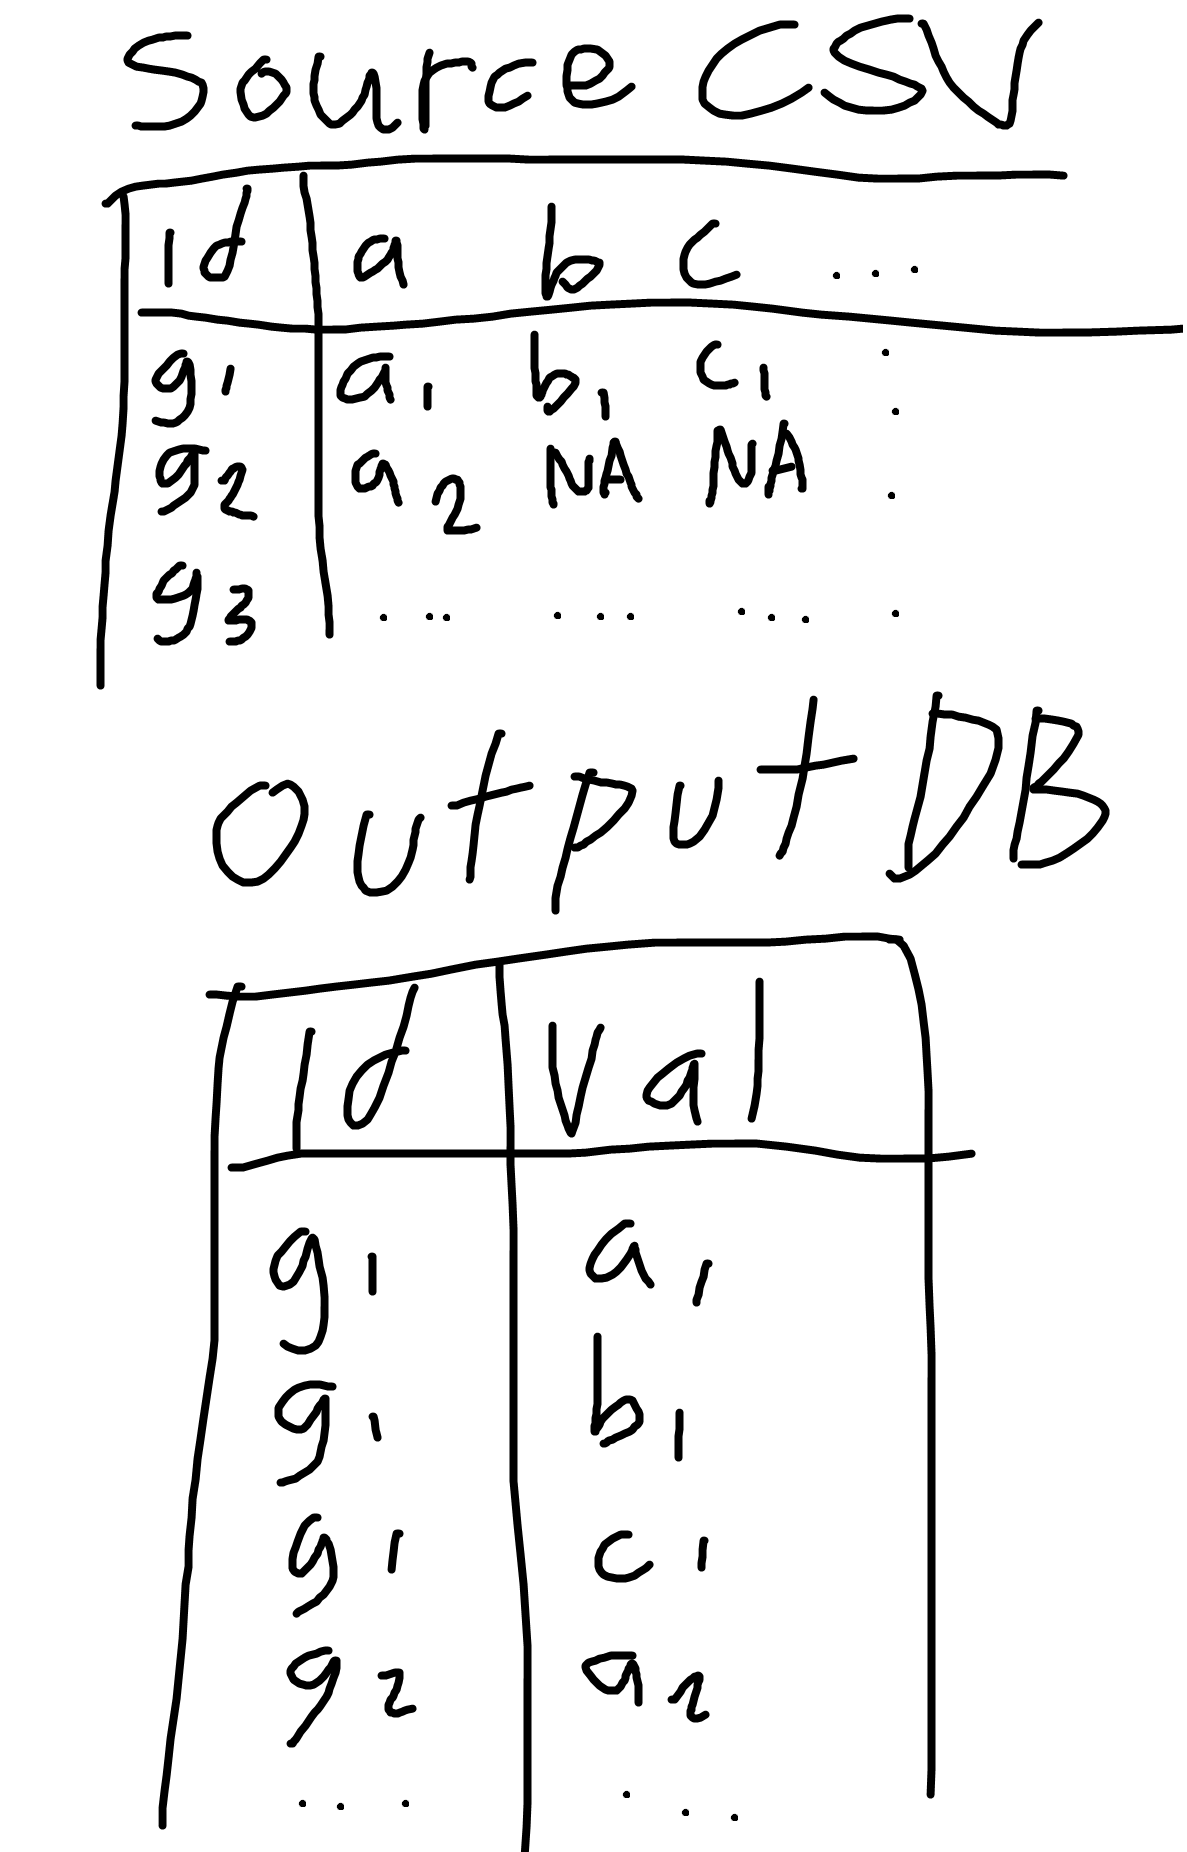 Source CSV
id a b c ...
g1 a1 b1 c1 .
g2 a2 NA NA .
g3 ... ... ... .
Output DB
id val
g1 a1
g1 b1
g1 c1
g2 a2
... ...